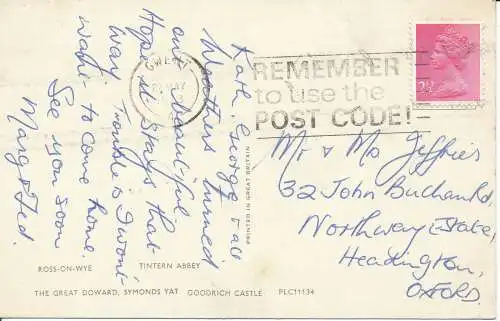 Kath, George & all
Weather turned
out beautiful.
Hope it stays that
way. Trouble is I won't
want to come home.
See you soon
Marg & Ted.
ROSS-ON-WYE TINTERN ABBEY
THE GREAT DOWARD, SYMONDS YAT GOODRICH CASTLE PLC11134
PRINTED IN GREAT BRITAIN
GWENT
REMEMBER
to use the
POST CODE!
2½
Mr & Mrs Jeffries
32 John Buchan Rd,
Northway Estate,
Headington,
OXFORD.